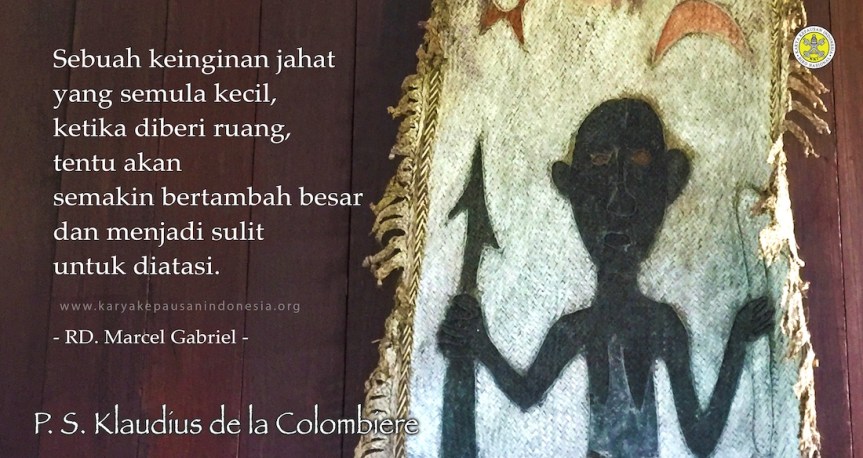 Sebuah keinginan jahat
yang semula kecil,
ketika diberi ruang,
tentu akan
semakin bertambah besar
dan menjadi sulit
untuk diatasi.
www.karyakepausanindonesia.org
- RD. Marcel Gabriel -
P. S. Klaudius de la Colombiere